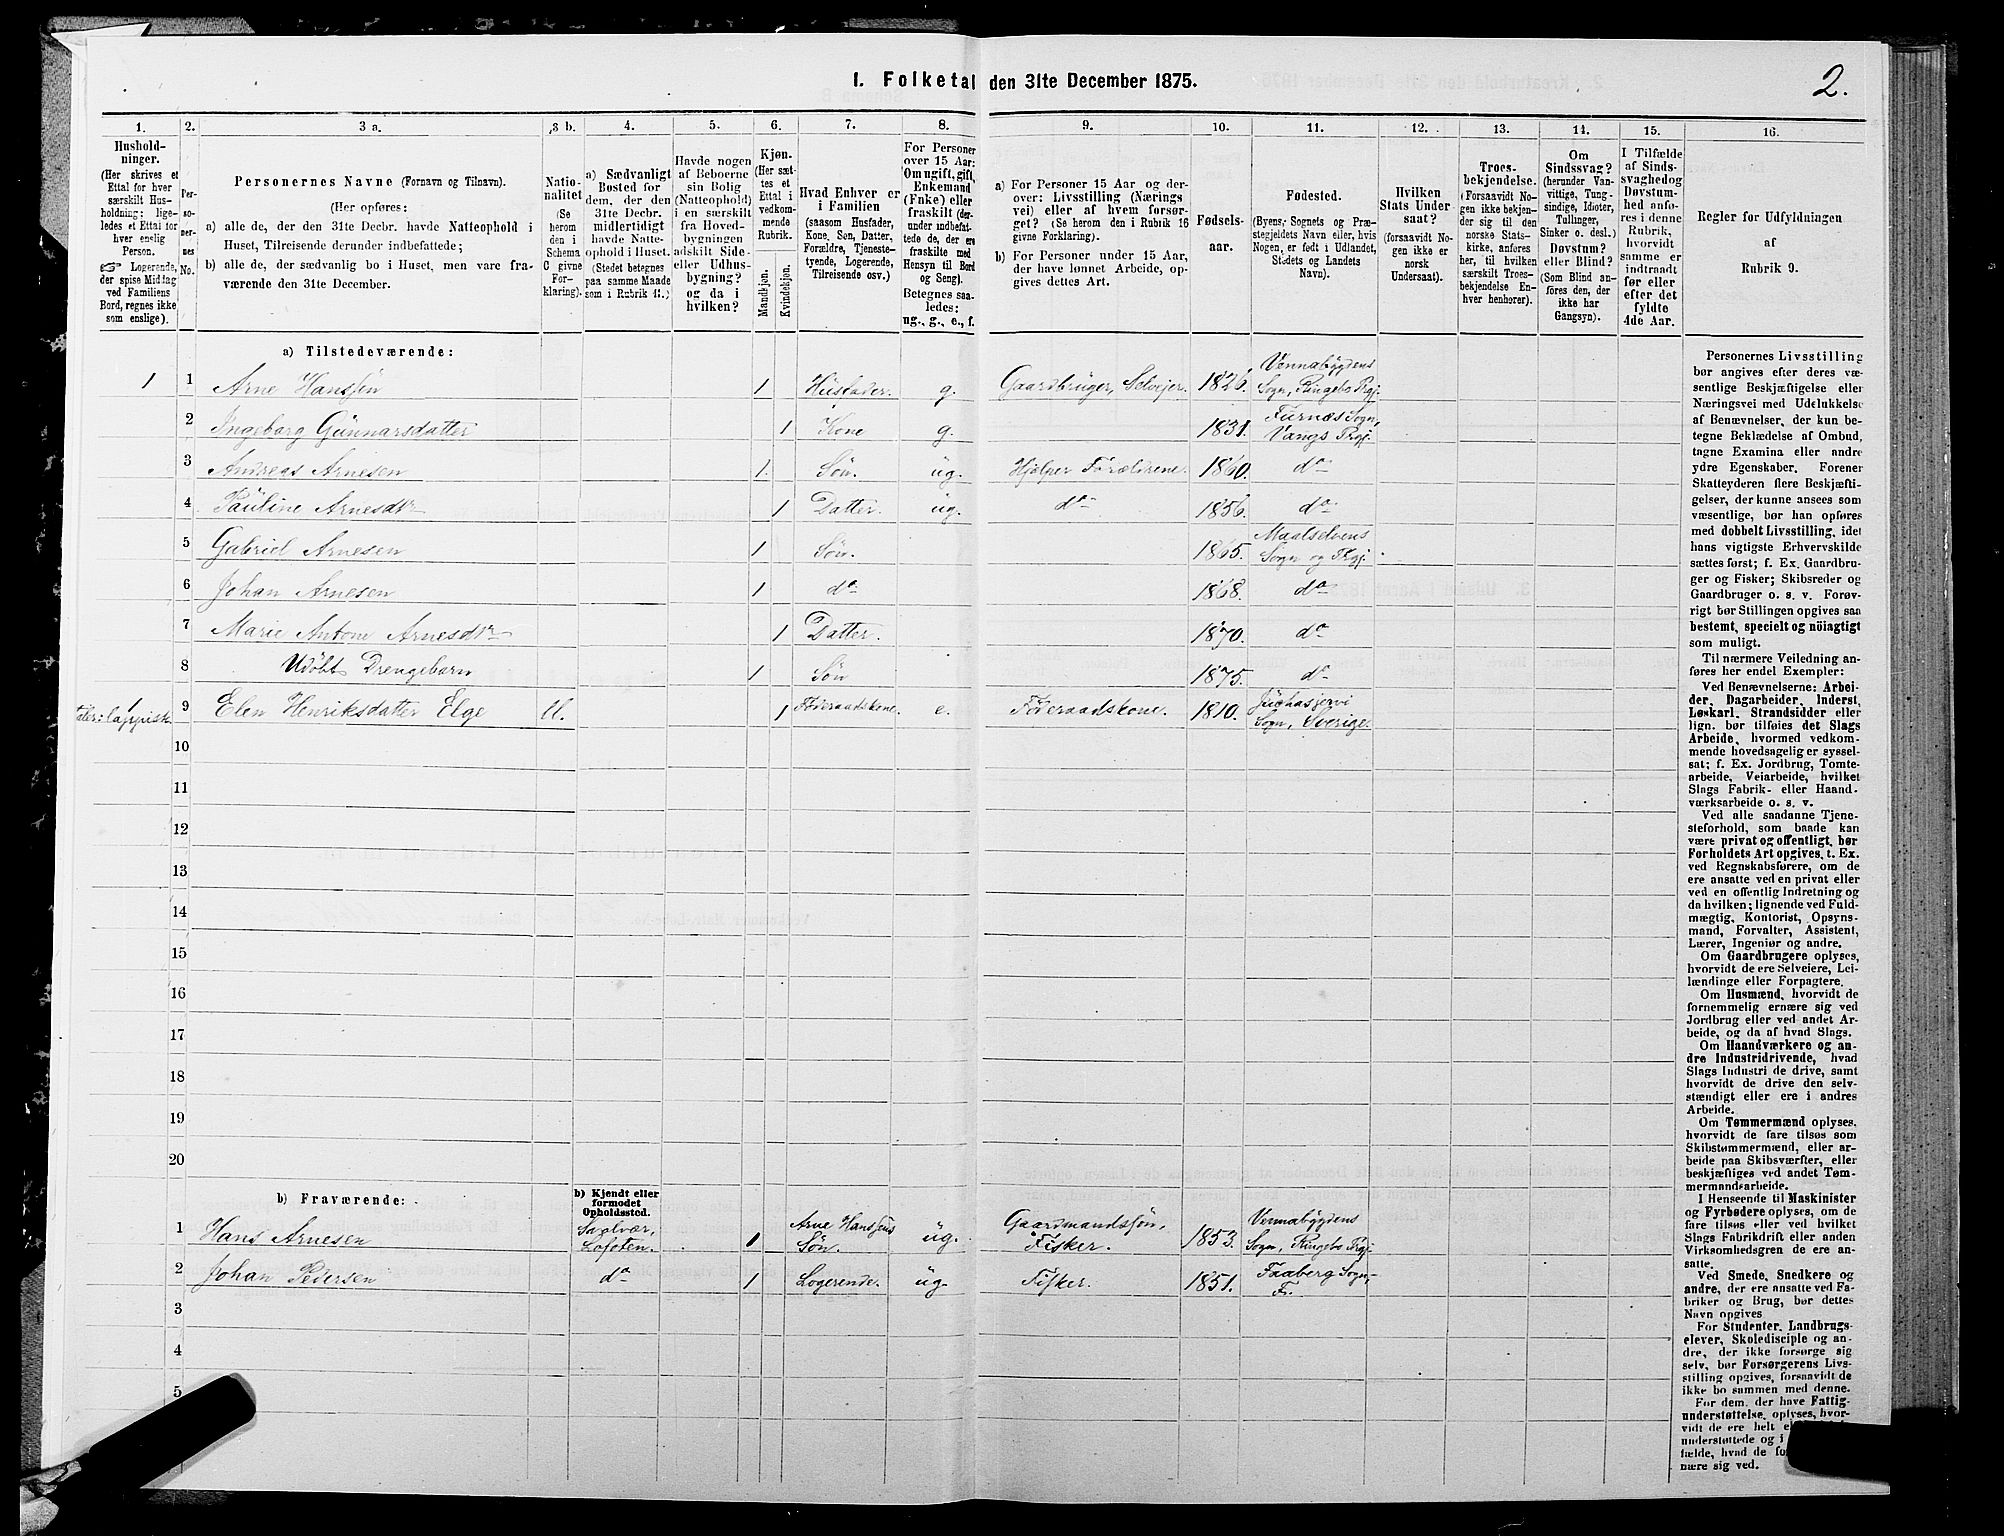 1. Folketal den 31te December 1875.
2.
1.
Hushold-
ninger.
(Her skrives et
Ettal for hver
særskilt Hus-
holdning; lige-
ledes et Ettal for
hver enslig
Person.
☞ Logerende,
der spise Middag
ved Familiens
Bord, regnes ikke
som enslige).
2.
Per-
so-
ner-
nes
No.
3 a.
Personernes Navne (Fornavn og Tilnavn).
(Her opføres:
a) alle de, der den 31te Decbr. havde Natteophold i
Huset, Tilreisende derunder indbefattede;
b) alle de, der sædvanlig bo i Huset, men vare fra-
værende den 31te December.
3 b.
Natio-
nalitet
(Se
herom
den i
Schema
C givne
For-
klaring).
4.
a) Sædvanligt
Bosted for
dem, der den
31te Decbr.
midlertidigt
havde Natte-
ophold i Huset.
(Stedet betegnes
paa samme Maade
som i Rubrik 11.)
5.
Havde nogen
af Beboerne
sin Bolig
(Natteophold)
i en særskilt
fra Hoved-
bygningen
adskilt Side-
eller Udhus-
bygning?
og da i
hvilken?
6.
Kjøn.
(Her sæt-
tes et
Ettal i
vedkom-
mende
Rubrik.
Mandkjøn.
Kvindekjøn.
7.
Hvad Enhver er
i Familien
(saasom Husfader,
Kone, Søn, Datter,
Forældre, Tjeneste-
tyende, Logerende,
Tilreisende osv.)
8.
For Personer
over 15 Aar:
Om ugift, gift,
Enkemand
(Enke) eller
fraskilt (der-
under indbefat-
tede de, der ere
fraskilte med
Hensyn til Bord
og Seng).
Betegnes saa-
ledes:
ug., g., e., f.
9.
a) For Personer 15 Aar og der-
over: Livsstilling (Nærings
vei) eller af hvem forsør-
get? (Se herom den i Rubrik 16
givne Forklaring).
b) For Personer under 15 Aar,
der have lønnet Arbeide, op-
gives dettes Art.
10.
Fødsels-
aar.
11.
Fødested.
(Byens, Sognets og Præ-
stegjeldets Navn eller, hvis
Nogen er født i Udlandet,
Stedets og Landets
Navn).
12.
Hvilken
Stats Under
saat?
(forsaavidt No-
gen ikke er
norsk
Undersaat).
13.
Troes-
bekjendelse.
(Forsaavidt No-
gen ikke bekjen-
der sig til den
norske Stats-
kirke, anføres
her, til hvilken
særskilt Troes-
bekjendelse En-
hver henhorer).
14.
Om
Sindssvag?
(herunder Van-
vittige, Tung-
sindige, Idioter,
Tullinger,
Sinker o. desl.)
Døvstum?
eller Blind?
(Som Blind an-
føres den, der
ikke har
Gangsyn).
15.
I Tilfælde
af Sinds-
svaghed og
Døvstum-
hed anfø-
res i denne
Rubrik,
hvorvidt
samme er
indtraadt
før eller
efter det
fyldte
4de Aar.
16.
Regler for Udfyldningen
af
Rubrik 9.
a) Tilstedeværende:
1 1 Arne Hanssen 1 Husfader. g. Gaardbruger, Selveier. 1826. Vennabygdens Sogn, Ringebo Prgj.
2 Ingeborg Gunnarsdatter 1 Kone g. 1831. Furnæs Sogn, Vangs Prgj.
3 Andreas Arnesen 1. Søn. ug. Hjælper Forældrene. 1860. do
4 Pauline Arnesdtr 1 Datter. ug. do 1856. do
5 Gabriel Arnesen 1 Søn. 1865. Maalselvens Sogn og Prgj.
6 Johan Arnesen 1 do 1868. do
7 Marie Antone Arnesdtr 1 Datter. 1870. do
8 Udøbt Drengebarn 1 Søn 1875. do
taler: lappisk. 9 Elen Henriksdatter Elge 1 Føderaadskone. e. Føderaadskone. 1810. Juckasjervi Sogn, Sverige.
10
11
12
13
14
15
16
17
18
19
20
b) Fraværende:
b) Kjendt eller
formodet
Opholdssted.
1 Hans Arnesen Lofoten. 1 Arne Hanssens Søn. ug. Gaardmandssøn, Fisker. 1853. Vennabygdens Sogn, Ringebo Prgj.
2 Johan Pedersen do 1 Logerende. ug. Fisker. 1851. Faaberg Sogn, F.
3
4
5
Personernes Livsstilling
bør angives efter deres væ-
sentlige Beskjæftigelse eller
Næringsvei med Udelukkelse
af Benævnelser, der kun be-
tegne Beklædelse af Ombud,
tagne Examina eller andre
ydre Egenskaber. Forener
Skatteyderen flere Beskjæfti-
gelser, der kunne ansees som
væsentlige, bør han opføres
med dobbelt Livsstilling, idet
hans vigtigste Erhvervskilde
sættes først; f. Ex. Gaardbru-
ger og Fisker; Skibsreder og
Gaardbruger o. s. v. Forøv-
rigt bør Stillingen opgives saa
bestemt, specielt og nöiagtigt
som muligt.
Til nærmere Veiledning an-
føres her endel Exempler:
Ved Benævnelserne: Arbei-
der, Dagarbeider, Inderst,
Løskarl, Strandsidder eller
lign. bør tilføies det Slags
Arbeide, hvormed vedkom-
mende hovedsagelig er syssel-
sat; f. Ex. Jordbrug, Tomte-
arbeide, Veiarbeide, hvilket
Slags Fabrik- eller Haand-
værksarbeide o. s. v.
Ved alle saadanne Tjene-
steforhold, som baade kan
være privat og offentligt, bør
Forholdets Art opgives, t. Ex.
ved Regnskabsførere, om de
ere ansatte ved en privat eller
ved en offentlig Indretning og
da hvilken; lignende ved Fuld-
mægtig, Kontorist, Opsyns-
mand, Forvalter, Assistent,
Lærer, Ingeniør og andre.
Om Gaardbrugere oplyses,
hvorvidt de ere Selveiere, Lei-
lændinge eller Forpagtere.
Om Husmænd, hvorvidt de
fornemmelig ernære sig ved
Jordbrug eller ved andet Ar-
beide, og da af hvad Slags.
Om Haandværkere og an-
dre Industridrivende, hvad
Slags Industri de drive, samt
hvorvidt de drive den selv-
stændigt eller ere i andres
Arbeide.
Om Tømmermænd oplyses,
hvorvidt de fare tilsøs som
Skibstømmermænd, eller ar-
beide paa Skibsværfter, eller
beskjæftiges ved andet Tøm-
mermandsarbeide.
I Henseende til Maskinister
og Fyrbødere oplyses, om de
fare tilsøs eller ved hvilket
Slags Fabrikdrift eller anden
Virksomhedsgren de ere an-
satte.
Ved Smede, Snedkere og
andre, der ere ansatte ved Fa-
briker og Brug, bør dettes
Navn opgives
For Studenter, Landbrugs-
elever, Skoledisciple og an-
dre, der ikke forsørge sig
selv, bør Forsørgerens Livs-
stilling opgives, forsaavidt de
ikke bo sammen med denne.
For dem, der have Fattig-
understøttelse, oplyses, hvor-
vidt de ere helt
understøttede og i
fælde, hvad de
nære sig ved.